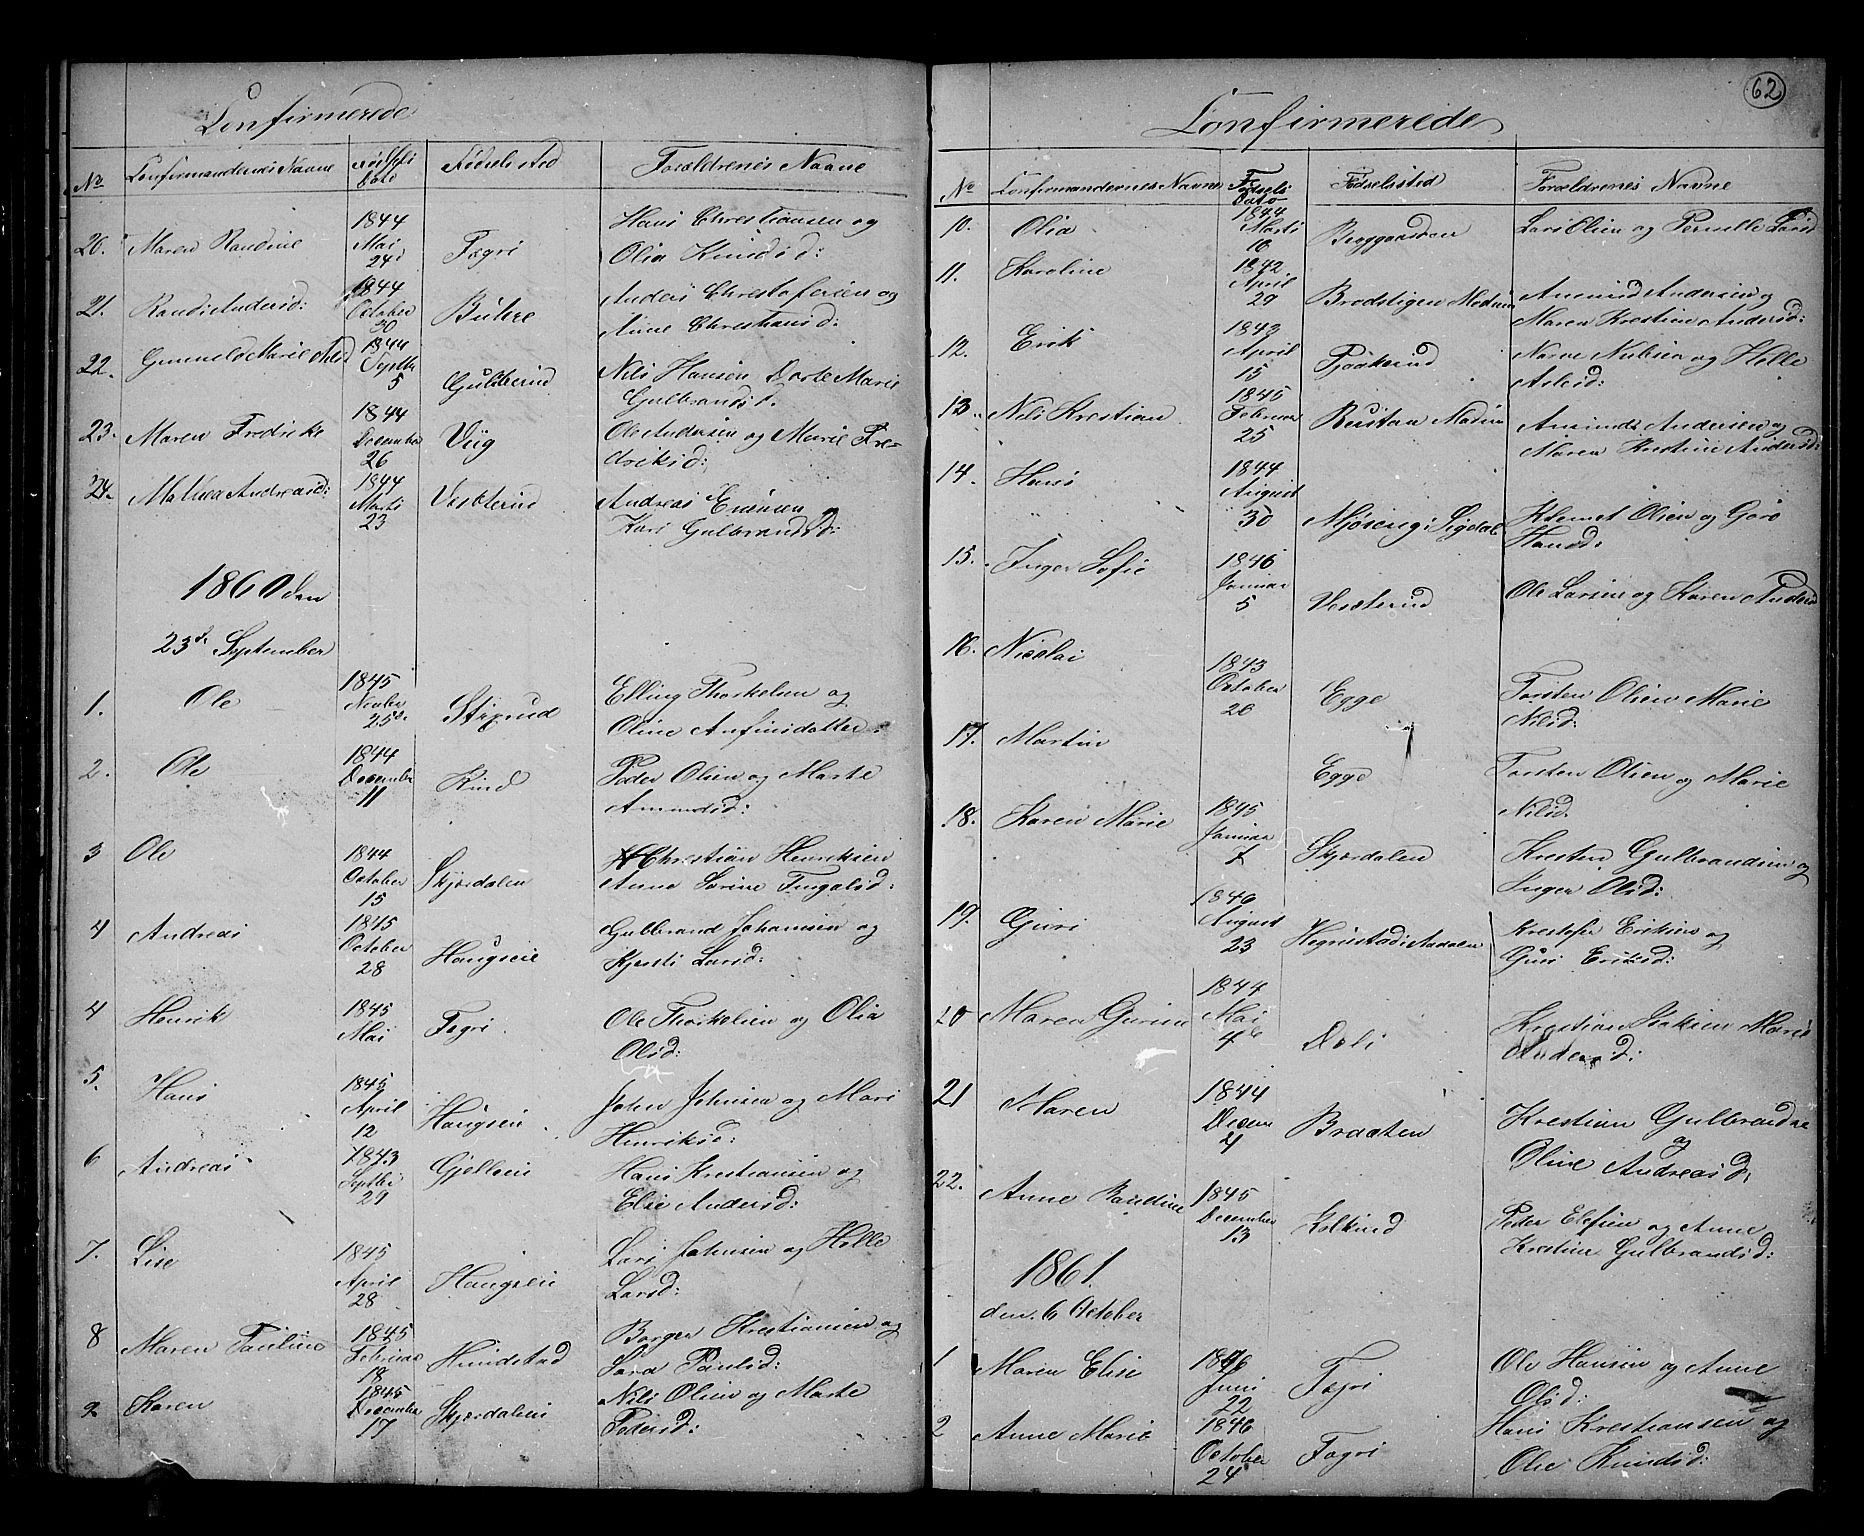 Confirmerede
No Confirmandernes Navne Fødsels Dato Fødselsted Forældrenes Navne
20. Maren Randine 1844 Mai 24d Fagri Hans Chrestiansen og
Olia Knudsd:
21. Randi Andersd: 1844 October 20 Buhre Anders Chrestofersen og
Anne Chrestiansd:
22. Gunnild Marie Nilsd 1844 Septbr 5 Gulbrud Nils Hansen Dorte Marie
Gulbrandsd.
23. Maren Fredrike 1844 December 26 Viig Ole Andersen og Marie Fre-
driksd:
24. Mathea Andreasd: 1844 Marts 23 Vesterud Andreas Enersen
Kari Gulbrandsd:
1860 den
23d. September
1. Ole 1845 Novbr 25d. Elling Thorkelsen og
Oline Anfinsdatter.
2. Ole 1844 December 11 Rud Peder Olsen og Marte
Amundsd:
3 Ole 1844 October 15 Skjærdalen Chrestian Henriksen
Anne Sørine Fingalsd:
4 Andreas 1845 October 28 Haugseie Gulbrand Johansen og
Kjersti Larsd:
4 Henrik 1845 Mai Fagri Ole Thorkelsen og Olia
Olsd:
5. Hans 1845 April 12 Haugseie John Johnsen og Mari
Henriksd:
6 Andreas 1843 Septbr 29 Hans Krestiansen og
Else Andersd:
7. Lise 1845 April 28 Haugseie Lars Johnsen og Helle
Larsd:
8 Maren Pauline 1845 Februar 18 Hundstad Borger Krestiansen og
Sara Paulsd:
9 Karen 1845 December 17 Skjærdalen Nils Olsen og Marte
Pedersd:
62
Confirmerede
No Confirmandernes Navne Fødsels Dato Fødselsstid Forældrenes Navne
10. Olia 1844 Marts 16 Lars Olsen og Pernelle Larsd
11. Karoline 1842 April 29 Bredstigen Modum Amund Andersen og
Maren Krestine Andersd:
12. Erik 1843 April 15 Narve Nubsen og Helle
Aslesd:
13. Nils Krestian 1845 Februar 25 Rustan Modum Amunds Andersen og
Maren Krestine Andersd:
14. Hans 1844 August 30 Sigdal Klemet Olsen og Goro
Hansd:
15. Inger Sofie 1846 Januar 5 Vesæterud Ole Larsen og Karen Andersd
16. Nicolai 1843 October 20 Egge Torsten Olsen Marie
Nilsd:
17. Martin Egge Torsten Olsen og Marie
Nilsd.
18. Karen Marie 1845 Januar 1 Skjærdalen Kresten Gulbrandsen og
Inger Olsd:
19. Guri 1846 August 23 Hegnustad i Aadalen Krestofer Eriksen og
Guri Eriksd:
20 Maren Gurine 1844 Mai 4de Dæli Krestian Isaksen Maren
Andersd:
21 Maren 1844 Decem 21 Braaten Krestian Gulbrandse
og
Oline Andreasd:
22. Anne Pauline 1845 December 13 Peder Elefsen og Anne
Krestine Gulbrandsd:
1861.
den. 6 October
1 Maren Elise 1846 Juni 22 Fagri Ole Hansen og Anne
Olsd:
2 Anne Marie 1846 October 24 Fagri Hans Krestiansen og
Olee Knudsd: